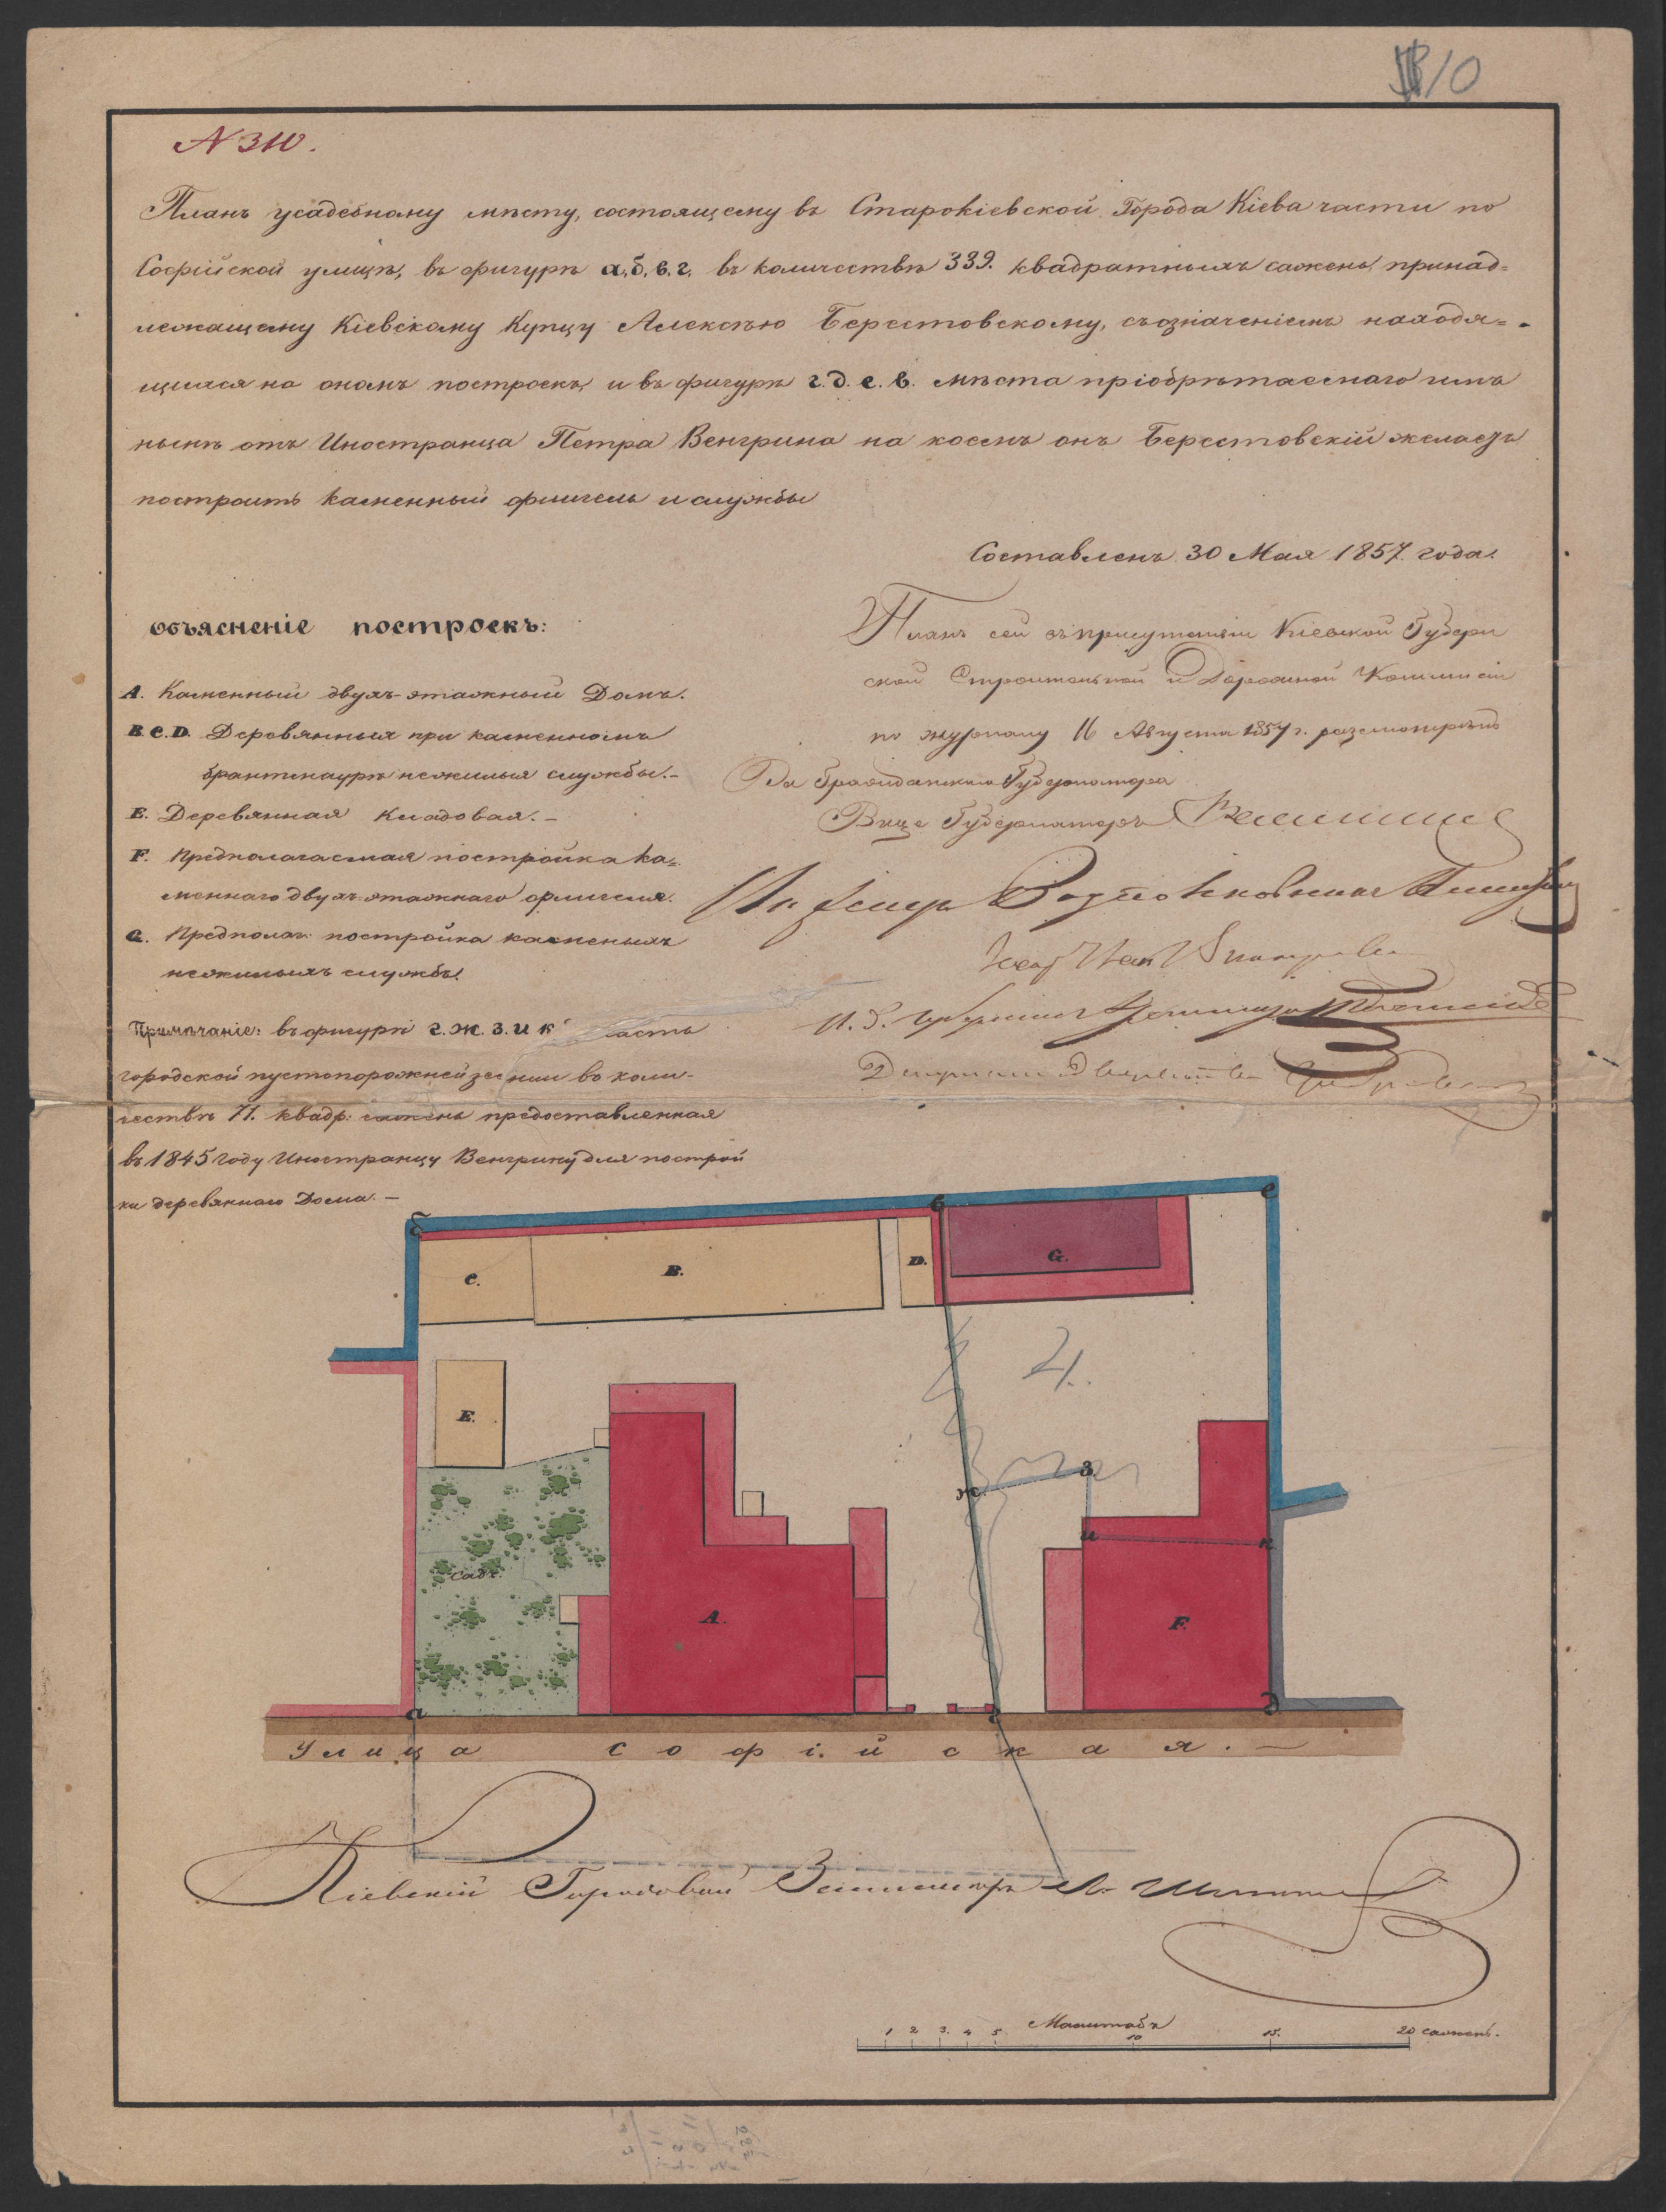 10
N 310.
Планъ усадебному мѣсту, состоящему въ Старокіевской Города Кіева части по
Софійской улицѣ, въ фигурѣ а, б, в, г, въ количествѣ 339. квадратныхъ сажень, принад=
лежащему Кіевскому Купцу Алексѣю Берестовскому, съозначеніемъ находя=
щихся на ономъ построекъ, и въ фигурѣ г. д. е. в. мѣста пріобрѣтаемаго имъ
нынѣ отъ Иностранца Петра Венгрина на коемъ онъ Берестовскій желаетъ
построить каменный флигель и службы
Составленъ 30 Мая 1857 года.
объясненіе построекъ:
А. Каменный двухъ-этажный Домъ.
В. С. D. Деревянныя при каменномъ
брантмауръ нежилыя службы.-
Е. Деревянная Кладовая.-
F. Предполагаемая постройка ка=
меннаго двухъ-этажнаго флигеля.
G. Предполаг: постройка каменныхъ
нежилыхъ службъ.
Примѣчаніе: въ фигурѣ г. ж. з. и к часть
городской пустопорожней земли въ коли-
чествѣ 71. квадр: сажень предоставленная
въ 1845 году Иностранцу Венгрину для построй
ки деревяннаго Дома.-
Планъ сей въ присутствіи Кіевской Губерн
ской Строительной и Дорожной Коммисіи
по журналу 16 Августа 1857 г. разсмотрѣнъ
За Гражданскаго Губернатора
Вице Губернаторъ
Инженеръ Подполковникъ
И. д.
Депутатъ Дворянства
б
в
е
С.
В.
D.
G.
4.
Е.
з
ж
и
к
Садъ.
А.
F.
а
г
д
Улица Софійская.-
Кіевскій Городовой Землемѣръ
Масштабъ
1 2 3. 4 5 10 15. 20 сажень.